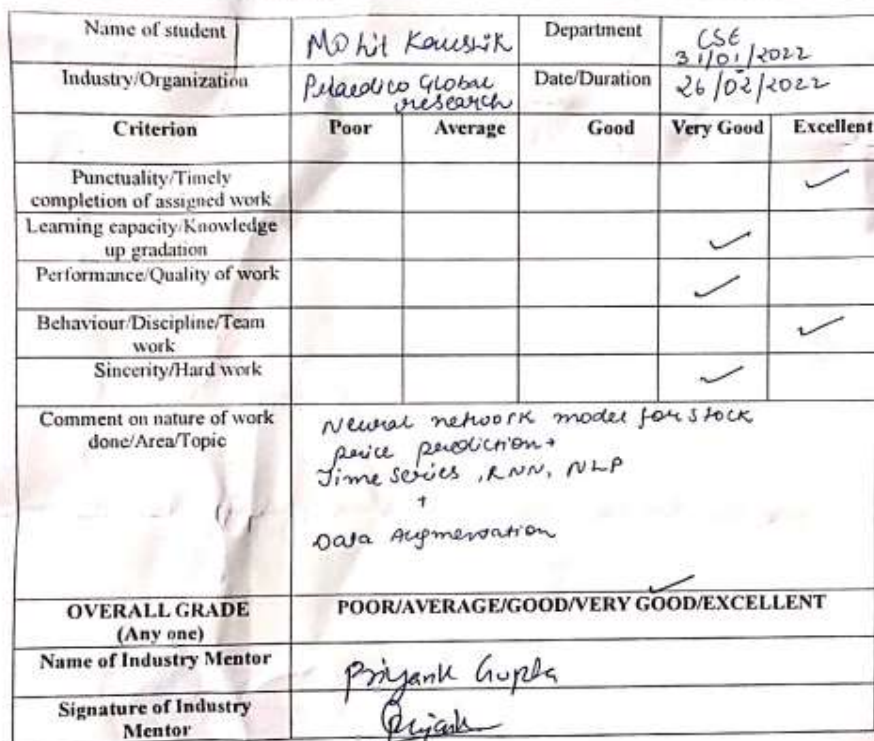 Name of student Mohit Kaushik Department CSE
31/01/2022
Industry/Organization Global research Date/Duration 26/02/2022
Criterion Poor Average Good Very Good Excellent
Punctuality/Timely completion of assigned work ✓
Learning capacity/Knowledge up gradation ✓
Performance/Quality of work ✓
Behaviour/Discipline/Team work ✓
Sincerity/Hard work ✓
Comment on nature of work done/Area/Topic
Neural network model for stock
price prediction +
Time series, RNN, NLP
+
Data Augmentation
OVERALL GRADE (Any one) POOR/AVERAGE/GOOD/VERY GOOD/EXCELLENT ✓
Name of Industry Mentor Priyank Gupta
Signature of Industry Mentor Priyank